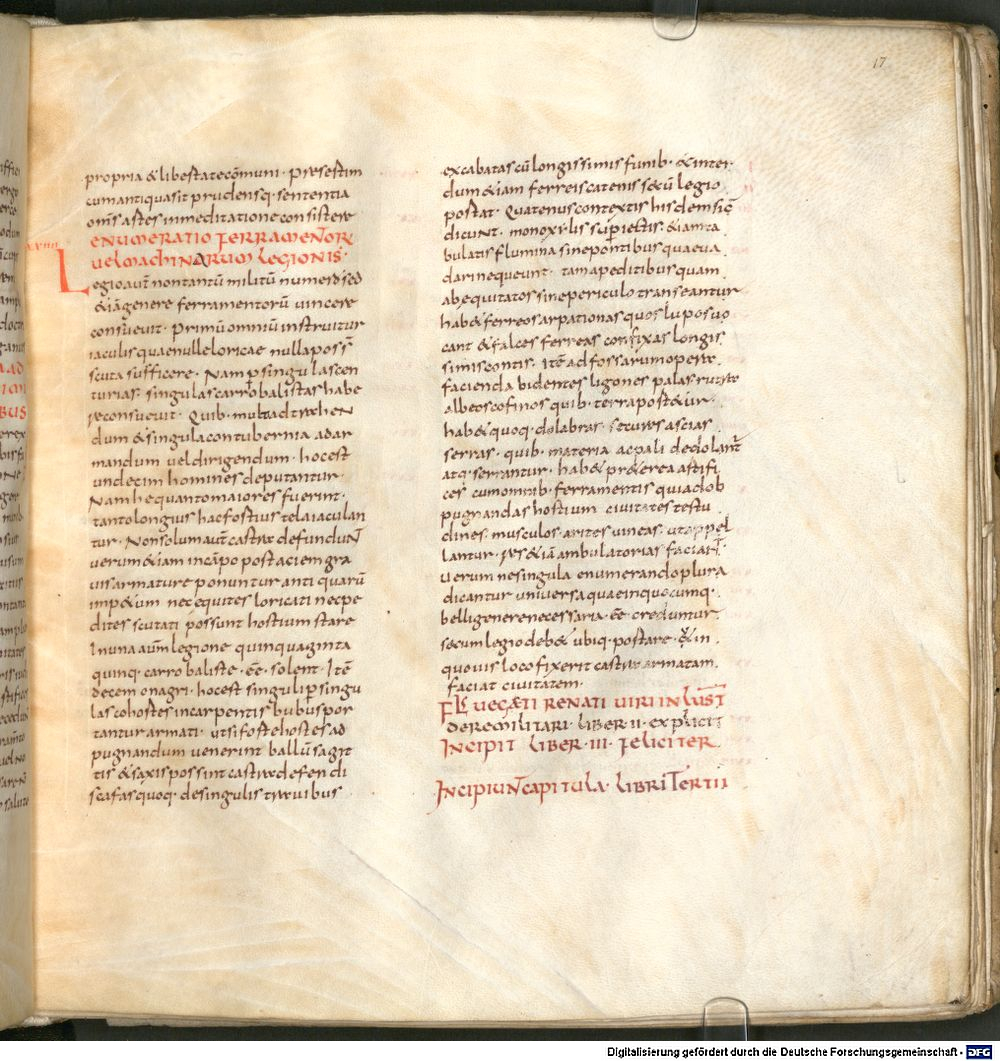 17
propria & libertate cōmuni · Praesertim
cum antiquas it prudensq· sententia
om̄s artes in meditatione consistere
ENUMERATIO FERRAMENTOR
VEL MACHINARUM LEGIONIS·
Legio aut̄ non tantū militū numero sed
& iā genere ferramentorū vincere
consuevit · Primū omniū instruitur
iaculis quae nulle loricae nulla poss̄
scuta sufficere · Nam p singulas cen
turias · singulas carrobalistas habe
re consuevit · Quib· mub ad trahen
dum & singula contubernia ad ar
mandum vel dirigendum · hoc est
undecim homines deputantur ·
Nam he quanto maiores fuerint ·
tanto longius hac fostius tela iaculan
tur · Non solum aut̄ castra defundun̄
verum & iam in cāpo post aciem gra
vis armature ponuntur anti quarū
imp&um nec equites loricati nec pe
dites scutati possunt hostium stare
In una aut̄ legione quinquaginta
quinq· carrobaliste · ēē · solent · Itē
decem onagri · hoc est singuli p singu
las cohostes in carpentis bubus por
tantur armati · ut si foste hostes ad
pugnandum venerint ballū sagit
tis & saxis possint castra defendi
scafas quoq· de singulis travibus
excabatas cū longissimis funib· & inter
dum & iam ferreis catenis secū legio
postat · Quatenus contextis hisdem sic̄
dicunt · monoxilis supiectis · & iam ta
bulatis flumina sine pontibus quae va
dari nequeunt · tam a peditibus quam
ab equitatos sine periculo transeantur
hab& ferreos arpationas quos lupos vo
cant & falces ferreas confixas longis
simis contis · Itē ad fossarum opera
facienda bidentes ligones palas rutro
albeos cofinos quib· terra post&ur ·
hab& quoq· dolabras · secures ascias
serras · quib· materia ac pali dedolan̄t
atq· serrantur · hab& pr&erea astifi
ces cum omnib· ferramentis qui ad ob
pugnandas hostium civitates testu
dines · musculos · arites vineas · ut appel
lantur · res & iā ambulatorias faciant̄·
Verum ne singula enumerando plura
dicantur universa quae in quocumq·
belli genere necessaria · ēē creduntur
secum legio deb& ubiq· postare · & in
quovis loco fixerit castra armatam
faciat civitatem ·
FL VEGETI RENATI VIRI INLUST
DE RE MILITARI · LIBER II · EXPLICIT
INCIPIT LIBER · III · FELICITER
INCIPIUNT CAPITULA · LIBRI TERTII
Digitalisierung gefördert durch die Deutsche Forschungsgemeinschaft - DFG